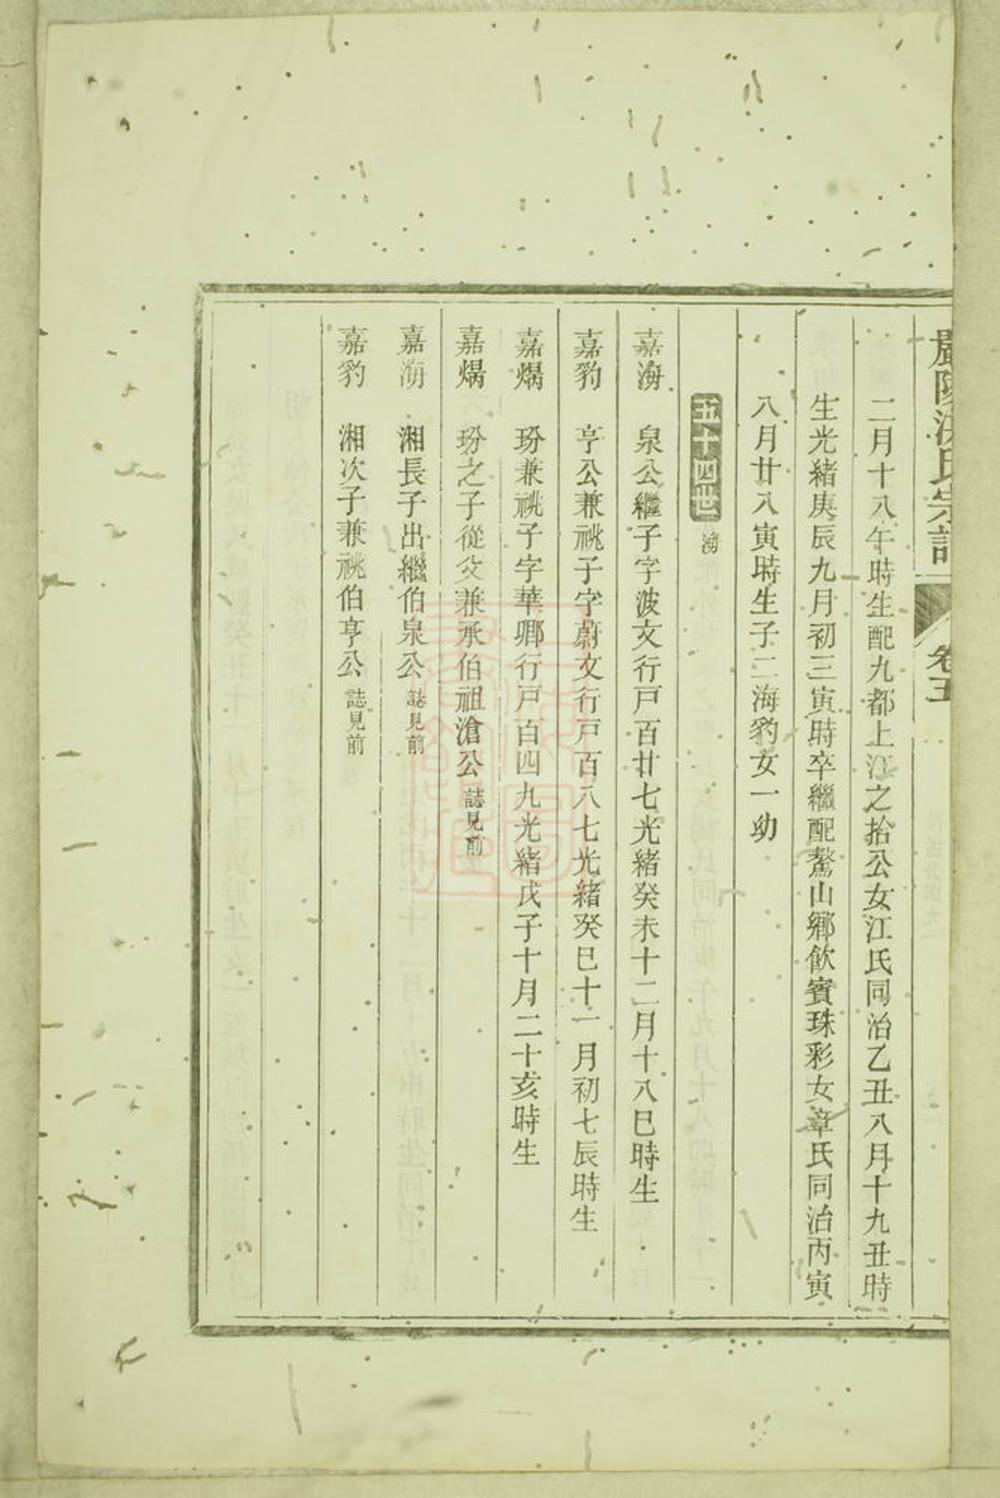 嚴陵洪氏宗譜 卷五
二月十八午時生配九都上江之拾公女江氏同治乙丑八月十九丑時
生光緒庚辰九月初三寅時卒繼配鰲山鄉飲賓珠彩女章氏同治丙寅
八月廿八寅時生子二海豹女一幼
五十四世
嘉海 泉公繼子字波文行戸百廿七光緒癸未十二月十八巳時生
嘉豹 亨公兼祧子字蔚文行戸百八七光緒癸巳十一月初七辰時生
嘉煬 玢兼祧子字華卿行戸百四九光緒戊子十月二十亥時生
嘉煬 玢之子從父兼承伯祖滄公誌見前
嘉海 湘長子出繼伯泉公誌見前
嘉豹 湘次子兼祧伯亨公誌見前